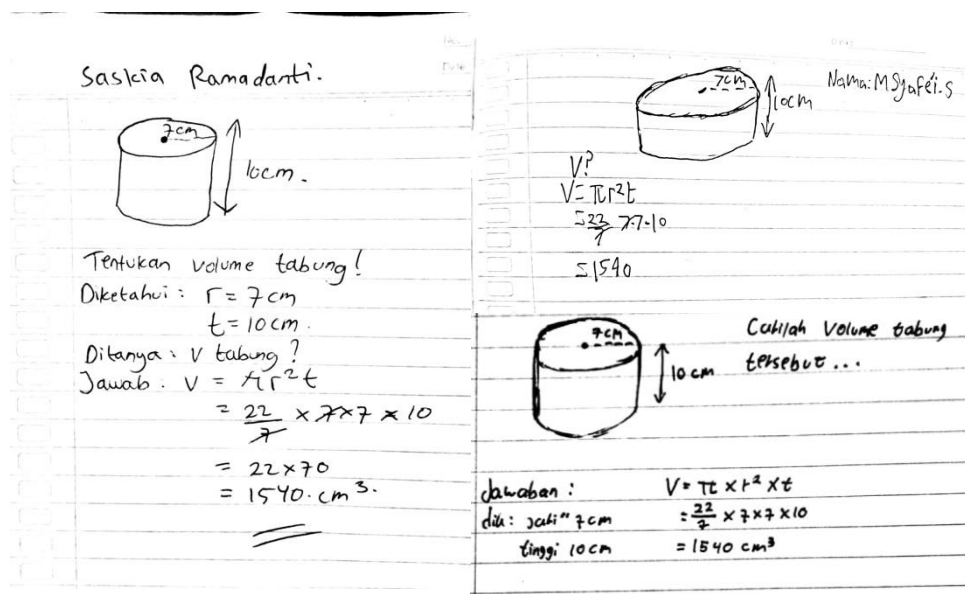 Saskia Ramadanti.
7cm
10cm.
Tentukan volume tabung!
Diketahui: r = 7 cm
t = 10 cm.
Ditanya: V tabung?
Jawab: V = πr²t
= 22/7 × 7 × 7 × 10
= 22 × 70
= 1540 cm³.
Nama: M Syafei.S
7cm
10cm
V?
V = πr²t
= 22/7 7·7·10
= 1540
7cm
10 cm
Carilah Volume tabung
tersebut ...
Jawaban: V = π × r² × t
dik: jari" 7cm = 22/7 × 7 × 7 × 10
tinggi 10cm = 1540 cm³